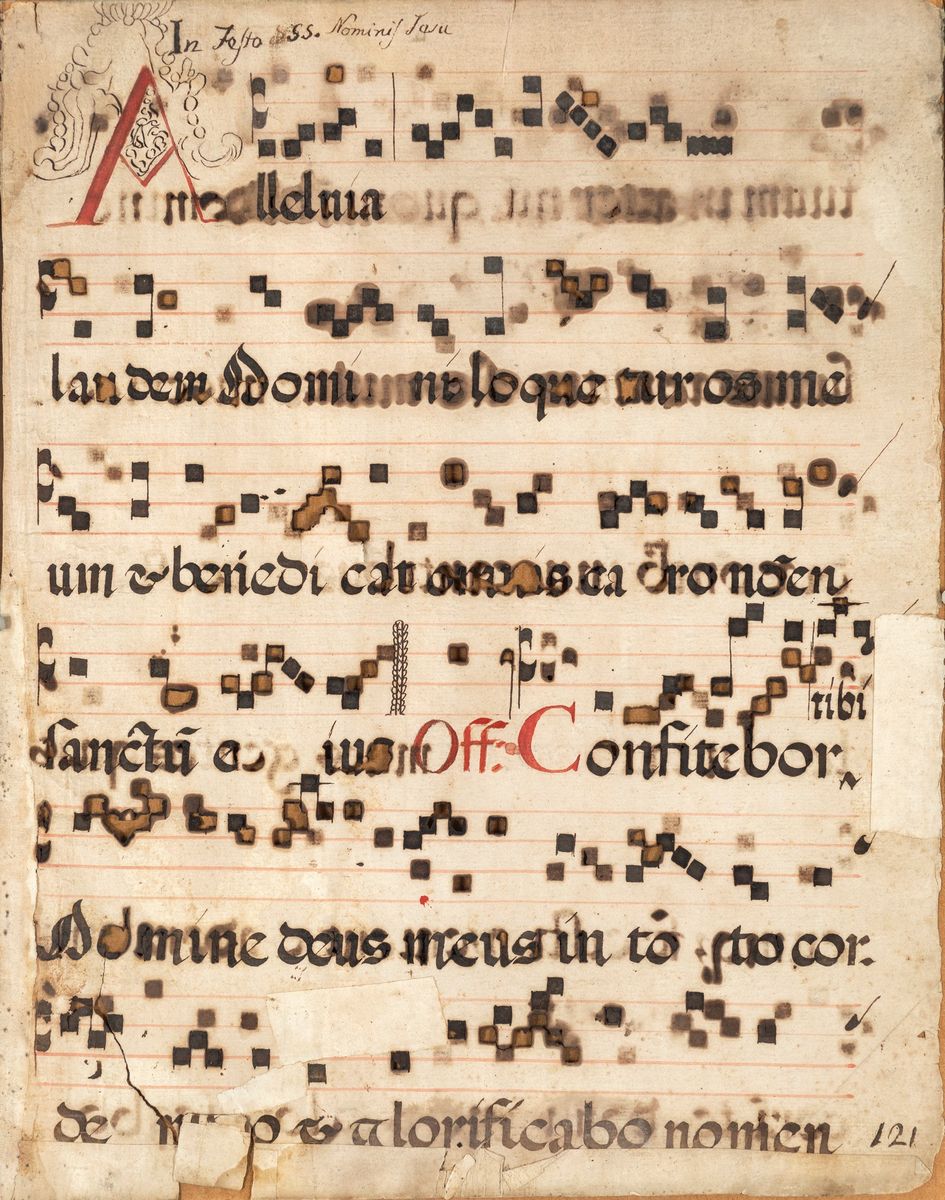 In Festo SS. Nominis Jesu
Alleluia
laudem Domi nis loque tur os me
um & benedi cat omnis ca ro nōen
sanctū e ius Off: Confitebor
tibi
Domine deus meus in tō to cor
de m o & glorificabo nomen
121